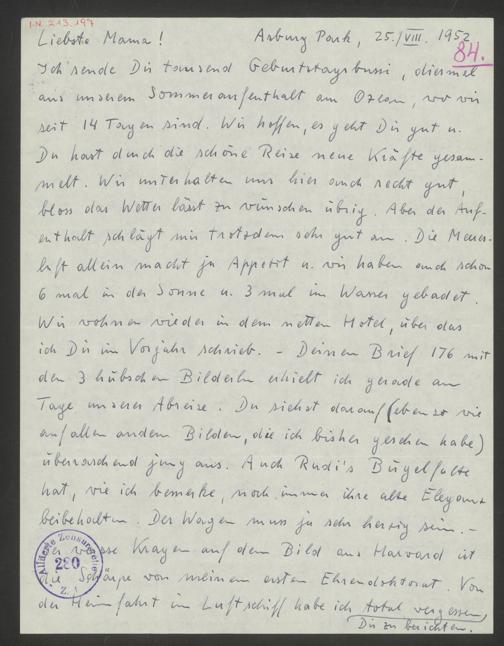 I.N. 213.197
Liebste Mama! Asbury Park, 25./VIII. 1952
84.
Ich sende Dir tausend Geburtstagsbussi, diesmal
aus unserem Sommeraufenthalt am Ozean, wo wir
seit 14 Tagen sind. Wir hoffen, es geht Dir gut u.
Du hast durch die schöne Reise neue Kräfte gesam-
melt. Wir unterhalten uns hier auch recht gut,
bloss das Wetter lässt zu wünschen übrig. Aber der Auf-
enthalt schlägt mir trotzdem sehr gut an. Die Meeres-
luft allein macht ja Appetit u. wir haben auch schon
6 mal in der Sonne u. 3 mal im Wasser gebadet.
Wir wohnen wieder in dem netten Hotel, über das
ich Dir im Vorjahr schrieb. – Deinen Brief 176 mit
den 3 hübschen Bilderln erhielt ich gerade am
Tage unserer Abreise. Du siehst darauf (ebenso wie
auf allen andern Bildern, die ich bisher gesehen habe)
überraschend jung aus. Auch Rudi's Bügelfalte
hat, wie ich bemerke, noch immer ihre alte Eleganz
beibehalten. Der Wagen muss ja sehr herzig sein. –
Der weisse Kragen auf dem Bild aus Harvard ist
die Schärpe von meinem ersten Ehrendoktorat. Von
der Heimfahrt im Luftschiff habe ich total vergessen,
Dir zu berichten.
Alliierte Zensurstelle
280